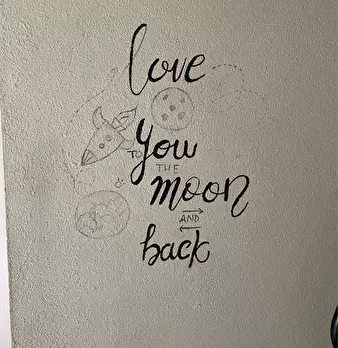 love
you
TO THE
moon
AND
back